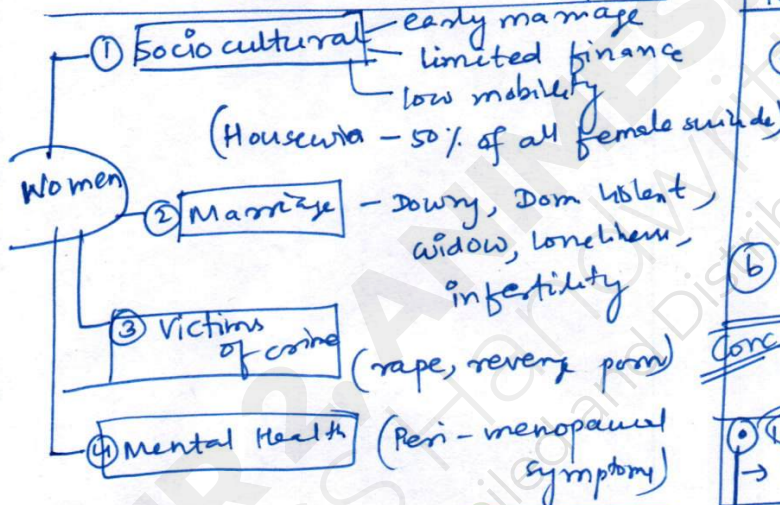 ① Socio cultural - early marriage
- limited finance
- low mobility
(Housewife - 50% of all female suicide)
Women
② Marriage - Dowry, Dom violent,
widow, loneliness,
infertility
③ Victims
of crime
(rape, revenge porn)
④ Mental Health (Peri-menopausal
symptoms)
⑥
Conc